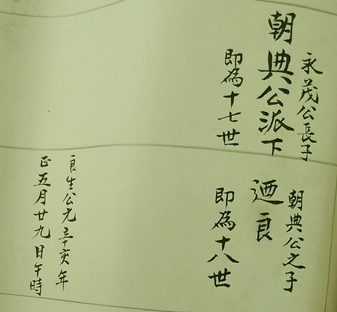 永茂公長子
朝典公派下
即為十七世
朝典公之子
迺良
即為十八世
良生公元辛亥年
五月廿九日午時